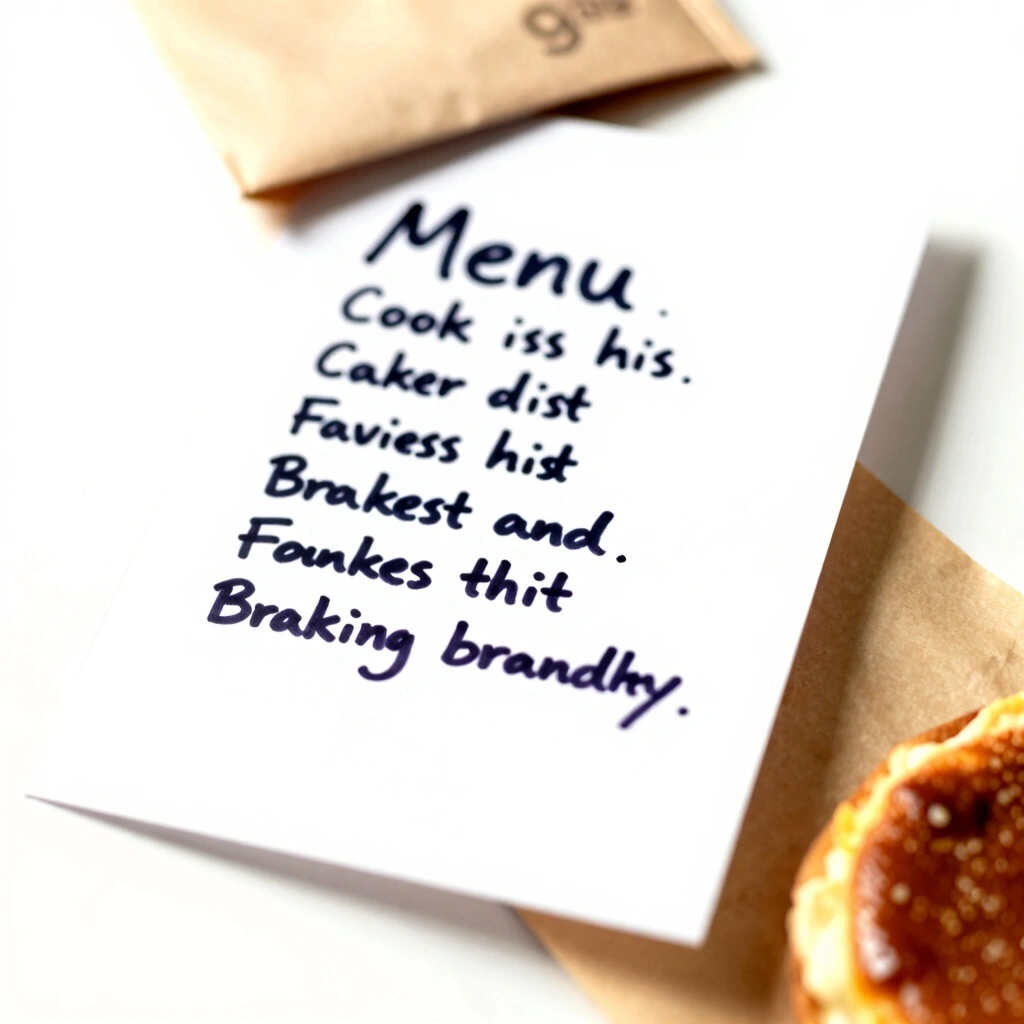 Menu.
Cook iss his.
Caker dist
Faviess hist
Brakest and.
Founkes thit
Braking